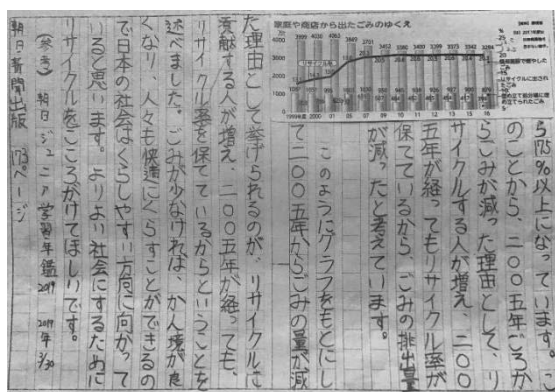 家庭や商店から出たごみのゆくえ
ら17.5%以上になっています。こ
のことから、二〇〇五年ごろか
らごみが減った理由として、リ
サイクルする人が増え、二〇〇
五年が経ってもリサイクル率が
保てているから、ごみの排出量
が減ったと考えています。
このようにグラフをもとにし
て二〇〇五年からごみの量が減
た理由として挙げられるのが、リサイクルに
貢献する人が増え、二〇〇五年が経っても、
リサイクル率を保てているからということを
述べました。ごみが少なければ、かん境が良
くなり、人々も快適にくらすことができるの
で日本の社会はくらしやすい方向に向かって
いると思います。よりよい社会にするために
リサイクルをこころがけてほしいです。
(参考) 朝日ジュニア学習年鑑2019 2019年3/30
朝日新聞出版 173ページ